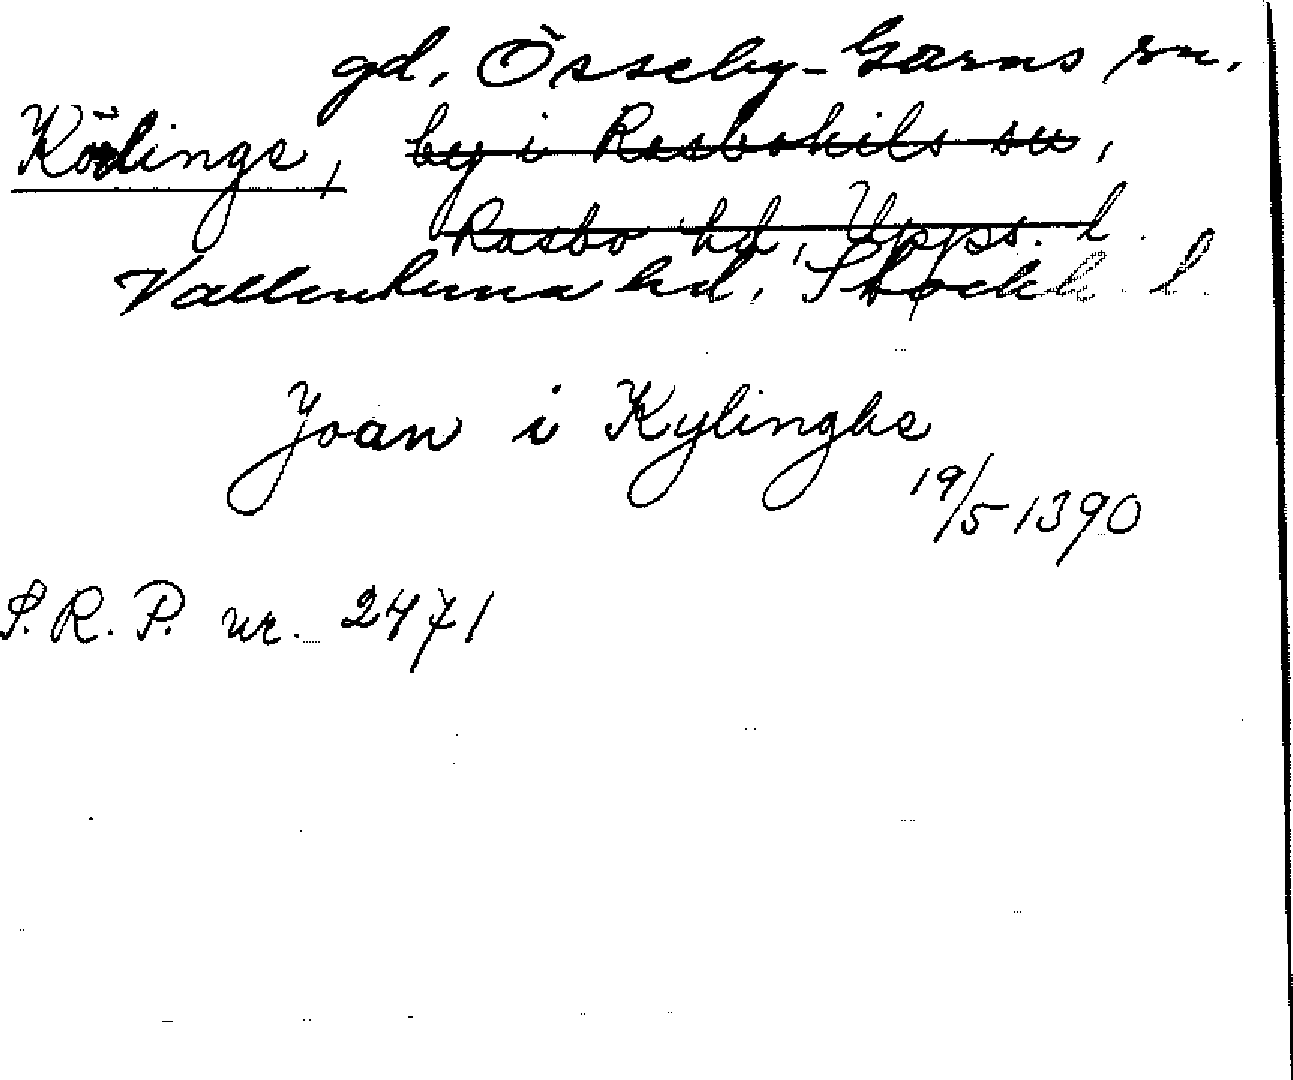 gd, Össeby-Garns sn.
Körlinge, by i Rasbokils sn,
Rasbo hd, Upps. l.
Vallentuna hd, Stockh. l.
Joan i Kylinghe
19/5 1390
S.R.P. nr. 2471